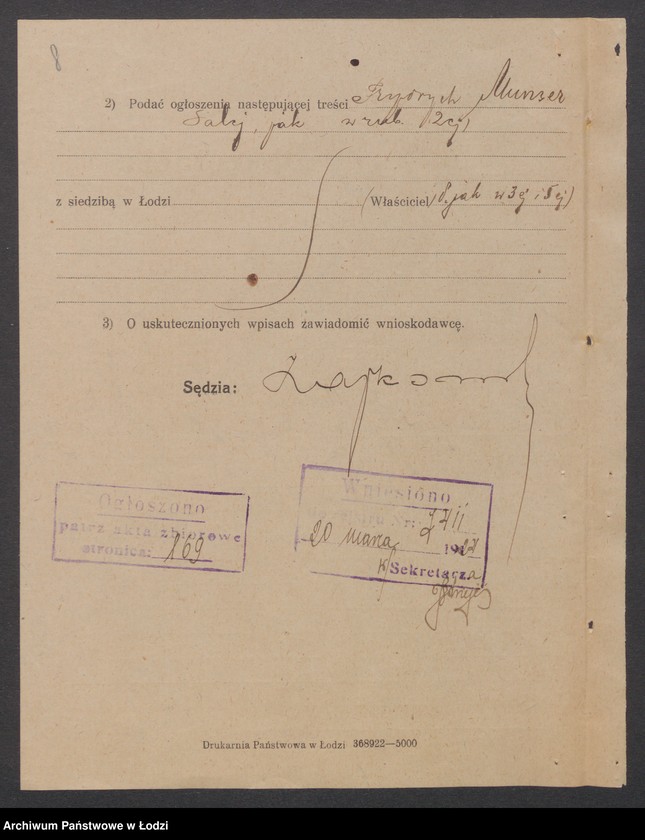 8
2) Podać ogłoszenia następującej treści Frydrych Munser
Dalej, jak w rub. 2ej,
z siedzibą w Łodzi (Właściciel) jak w 3ej i 5ej)
3) O uskutecznionych wpisach zawiadomić wnioskodawcę.
Sędzia:
Ogłoszono
patrz akta zbiorowe
stronica: 169
Wniesiono
Nr:
20 marca 1927
Sekretarz
Drukarnia Państwowa w Łodzi 368922—5000
Archiwum Państwowe w Łodzi